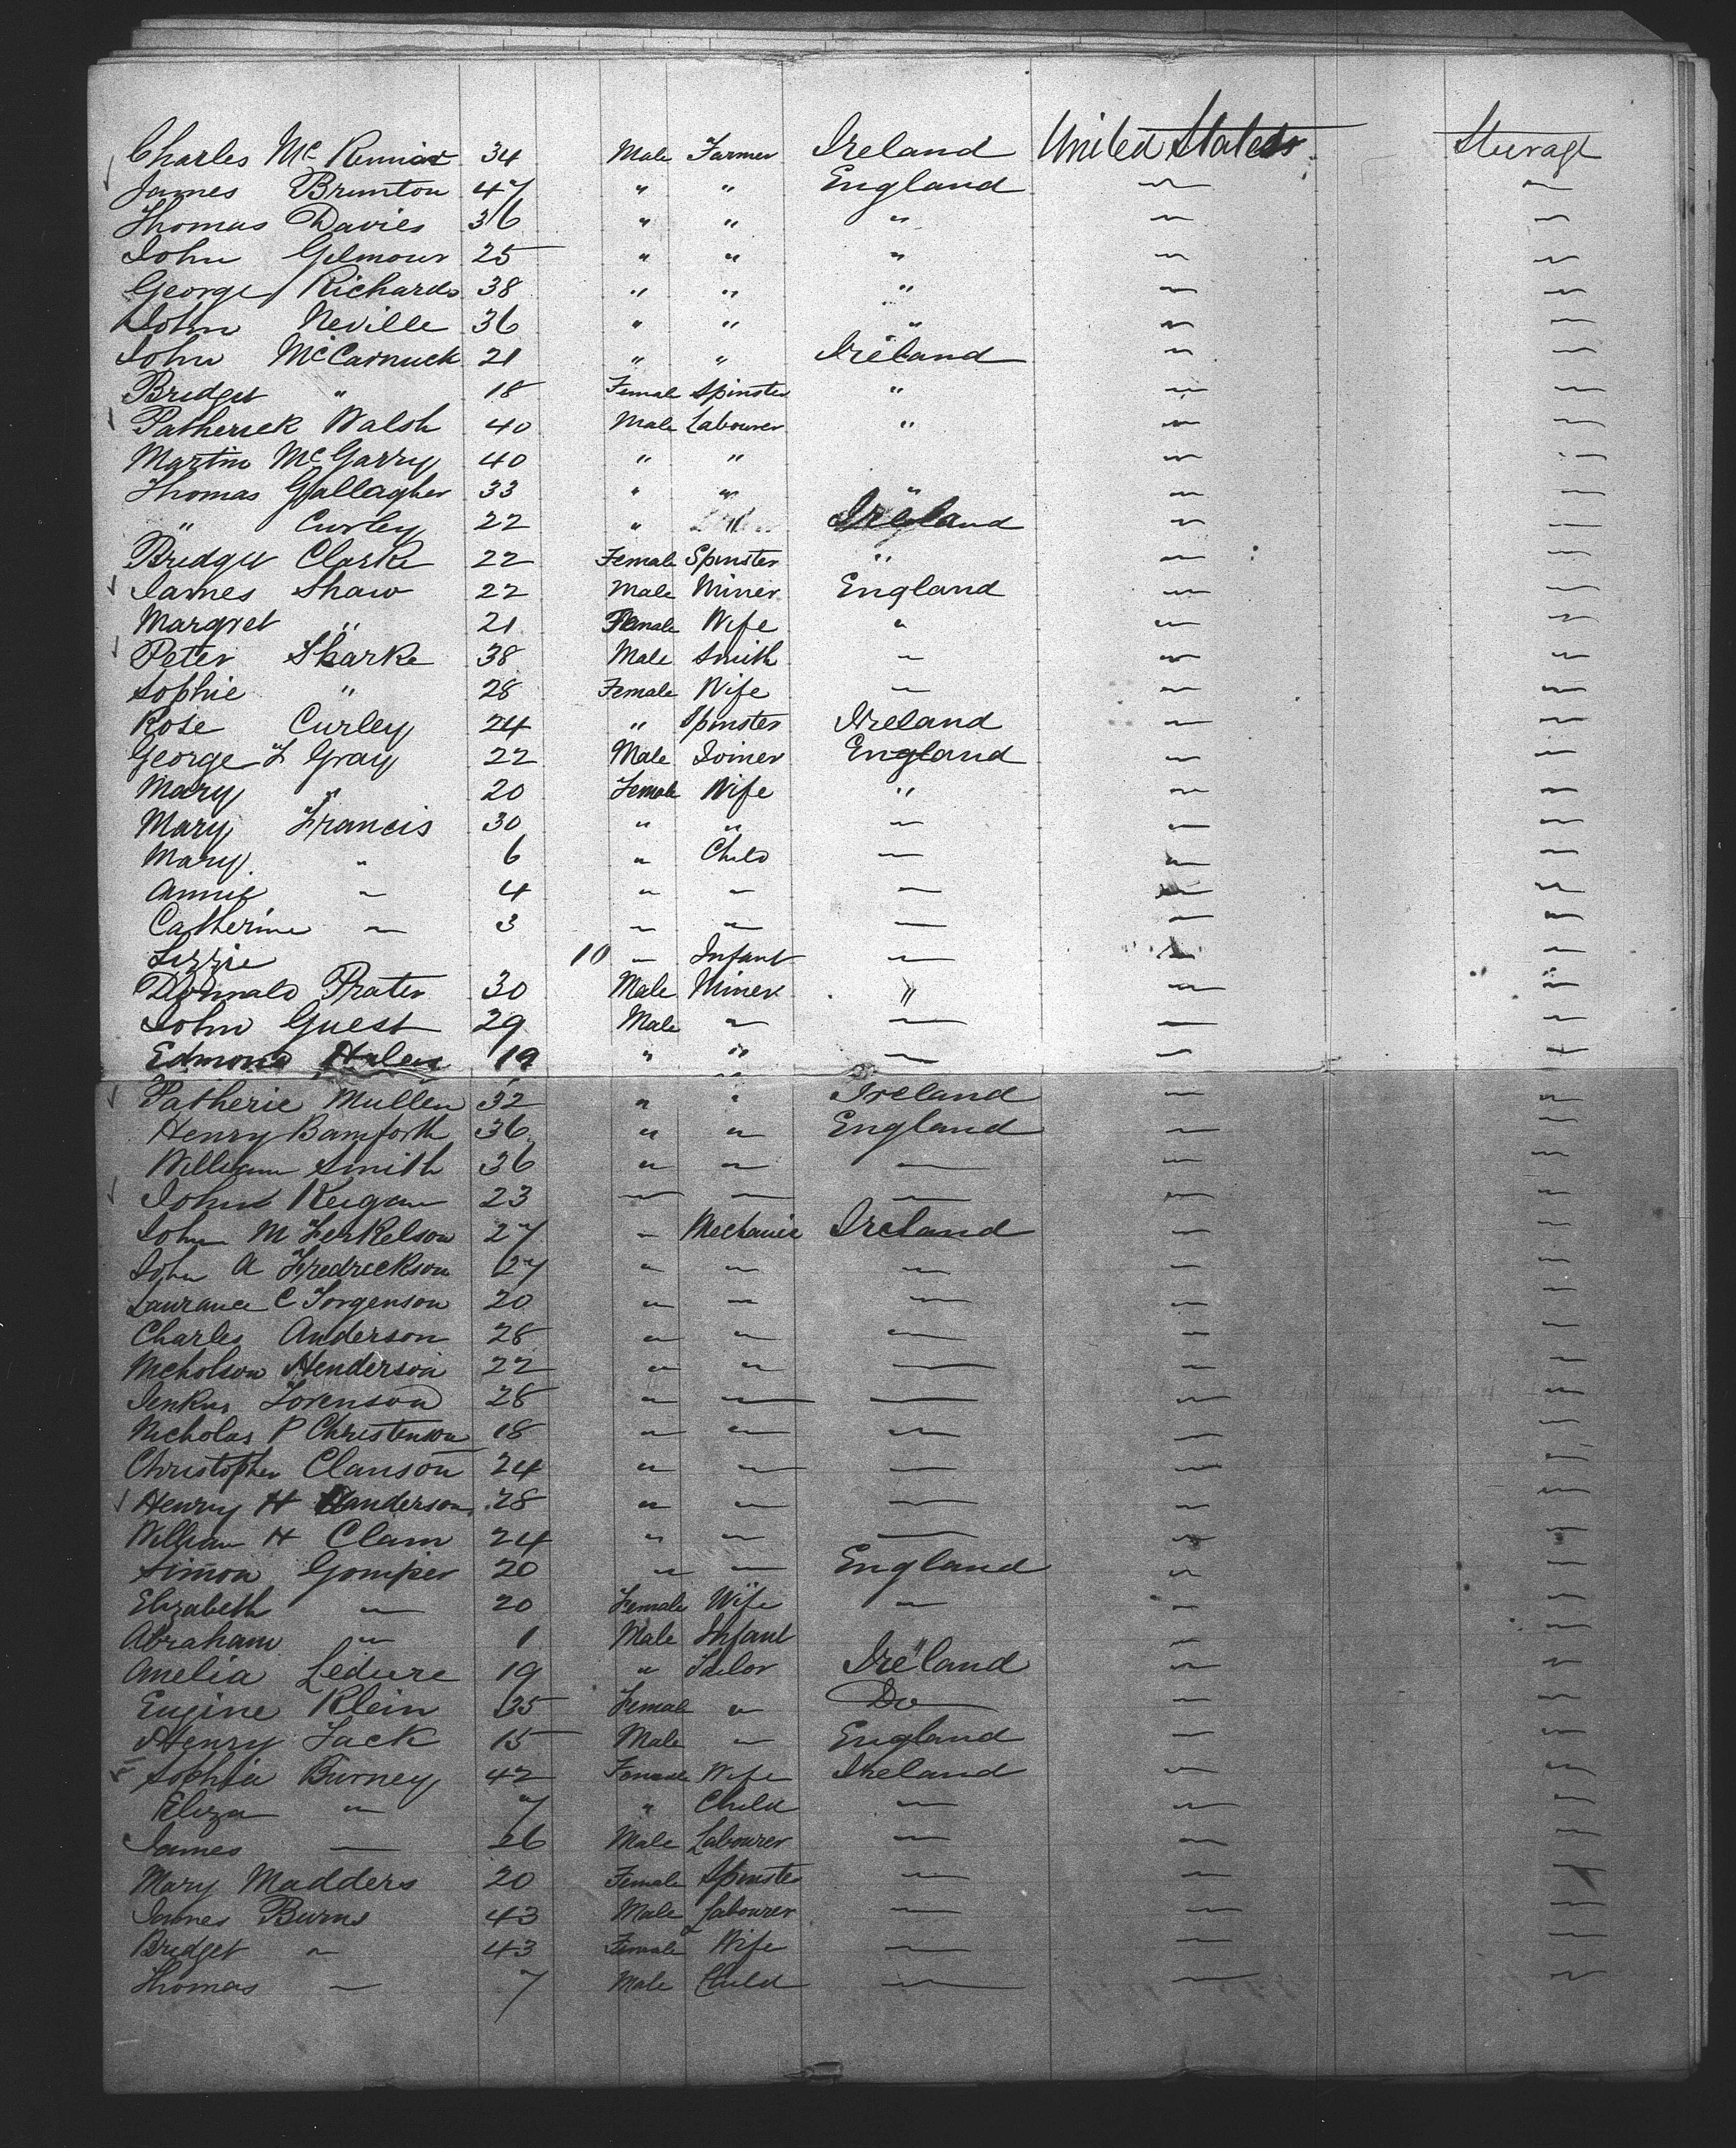 Charles Mc 34 Male Farmer Ireland United States Steerage
James Brunton 47 " " England ~ ~
Thomas Davies 36 " " " ~ ~
John Gilmour 25 " " " ~ ~
George Richards 38 " " " ~ ~
John Neville 36 " " " ~ ~
John McCarnuck 21 " " Ireland ~ ~
Bridget " 18 Female Spinster " ~ ~
Patherick Walsh 40 Male Labourer " ~ ~
Martin McGarry 40 " " ~ ~
Thomas Gallagher 33 " " " ~ ~
" Curley 22 " Ireland ~ ~
Bridget Clarke 22 Female Spinster " ~ ~
James Shaw 22 Male Miner England ~ ~
Margret " 21 Female Wife " ~ ~
Peter Sharke 38 Male Smith ~ ~ ~
Sophie " 28 Female Wife ~ ~ ~
Rose Curley 24 " Spinster Ireland ~ ~
George F Gray 22 Male Joiner England ~ ~
Mary " 20 Female Wife " ~ ~
Mary Francis 30 " " ~ ~ ~
Mary " 6 " Child ~ ~ ~
Annie ~ 4 " ~ ~ ~ ~
Catherine ~ 3 ~ ~ ~ ~ ~
Lizzie 10 ~ Infant ~ ~ ~
Donnald Prater 30 Male Miner " ~ ~
John Guest 29 Male ~ ~ ~ ~
Edmond 19 " " ~ ~ ~
Patheric Mullen 32 " " Ireland ~ ~
Henry Bamforth 36 " " England ~ ~
William Smith 36 " ~ ~ ~ ~
John Keigan 23 ~ ~ ~ ~ ~
John M Ferkelson 27 ~ Mechanic Ireland ~ ~
John A Fredrickson 27 " ~ ~ ~ ~
Laurance C Jorgenson 20 " ~ ~ ~ ~
Charles Anderson 28 " ~ ~ ~ ~
Nicholson Henderson 22 " ~ ~ ~ ~
Jenkus Lorenson 28 " ~ ~ ~ ~
Nicholas P Christenson 18 ~ ~ ~ ~ ~
Christopher Clauson 24 " ~ ~ ~ ~
Henry H Handerson 28 " ~ ~ ~ ~
William H Clam 24 " ~ ~ ~ ~
Simon Gomper 20 " ~ England ~ ~
Elizabeth ~ 20 Female Wife ~ ~ ~
Abraham ~ 1 Male Infant " ~ ~
Amelia Ledure 19 " Tailor Ireland ~ ~
Eugine Klein 35 Female " Do ~ ~
Henry Jack 15 Male ~ England ~ ~
Sophia Burney 42 Female Wife Ireland ~ ~
Eliza ~ 7 " Child ~ ~ ~
James ~ 26 Male Labourer ~ ~ ~
Mary Madders 20 Female Spinster ~ ~ ~
James Burns 43 Male Labourer ~ ~ ~
Bridget ~ 43 Female Wife ~ ~ ~
Thomas ~ 7 Male Child ~ ~ ~